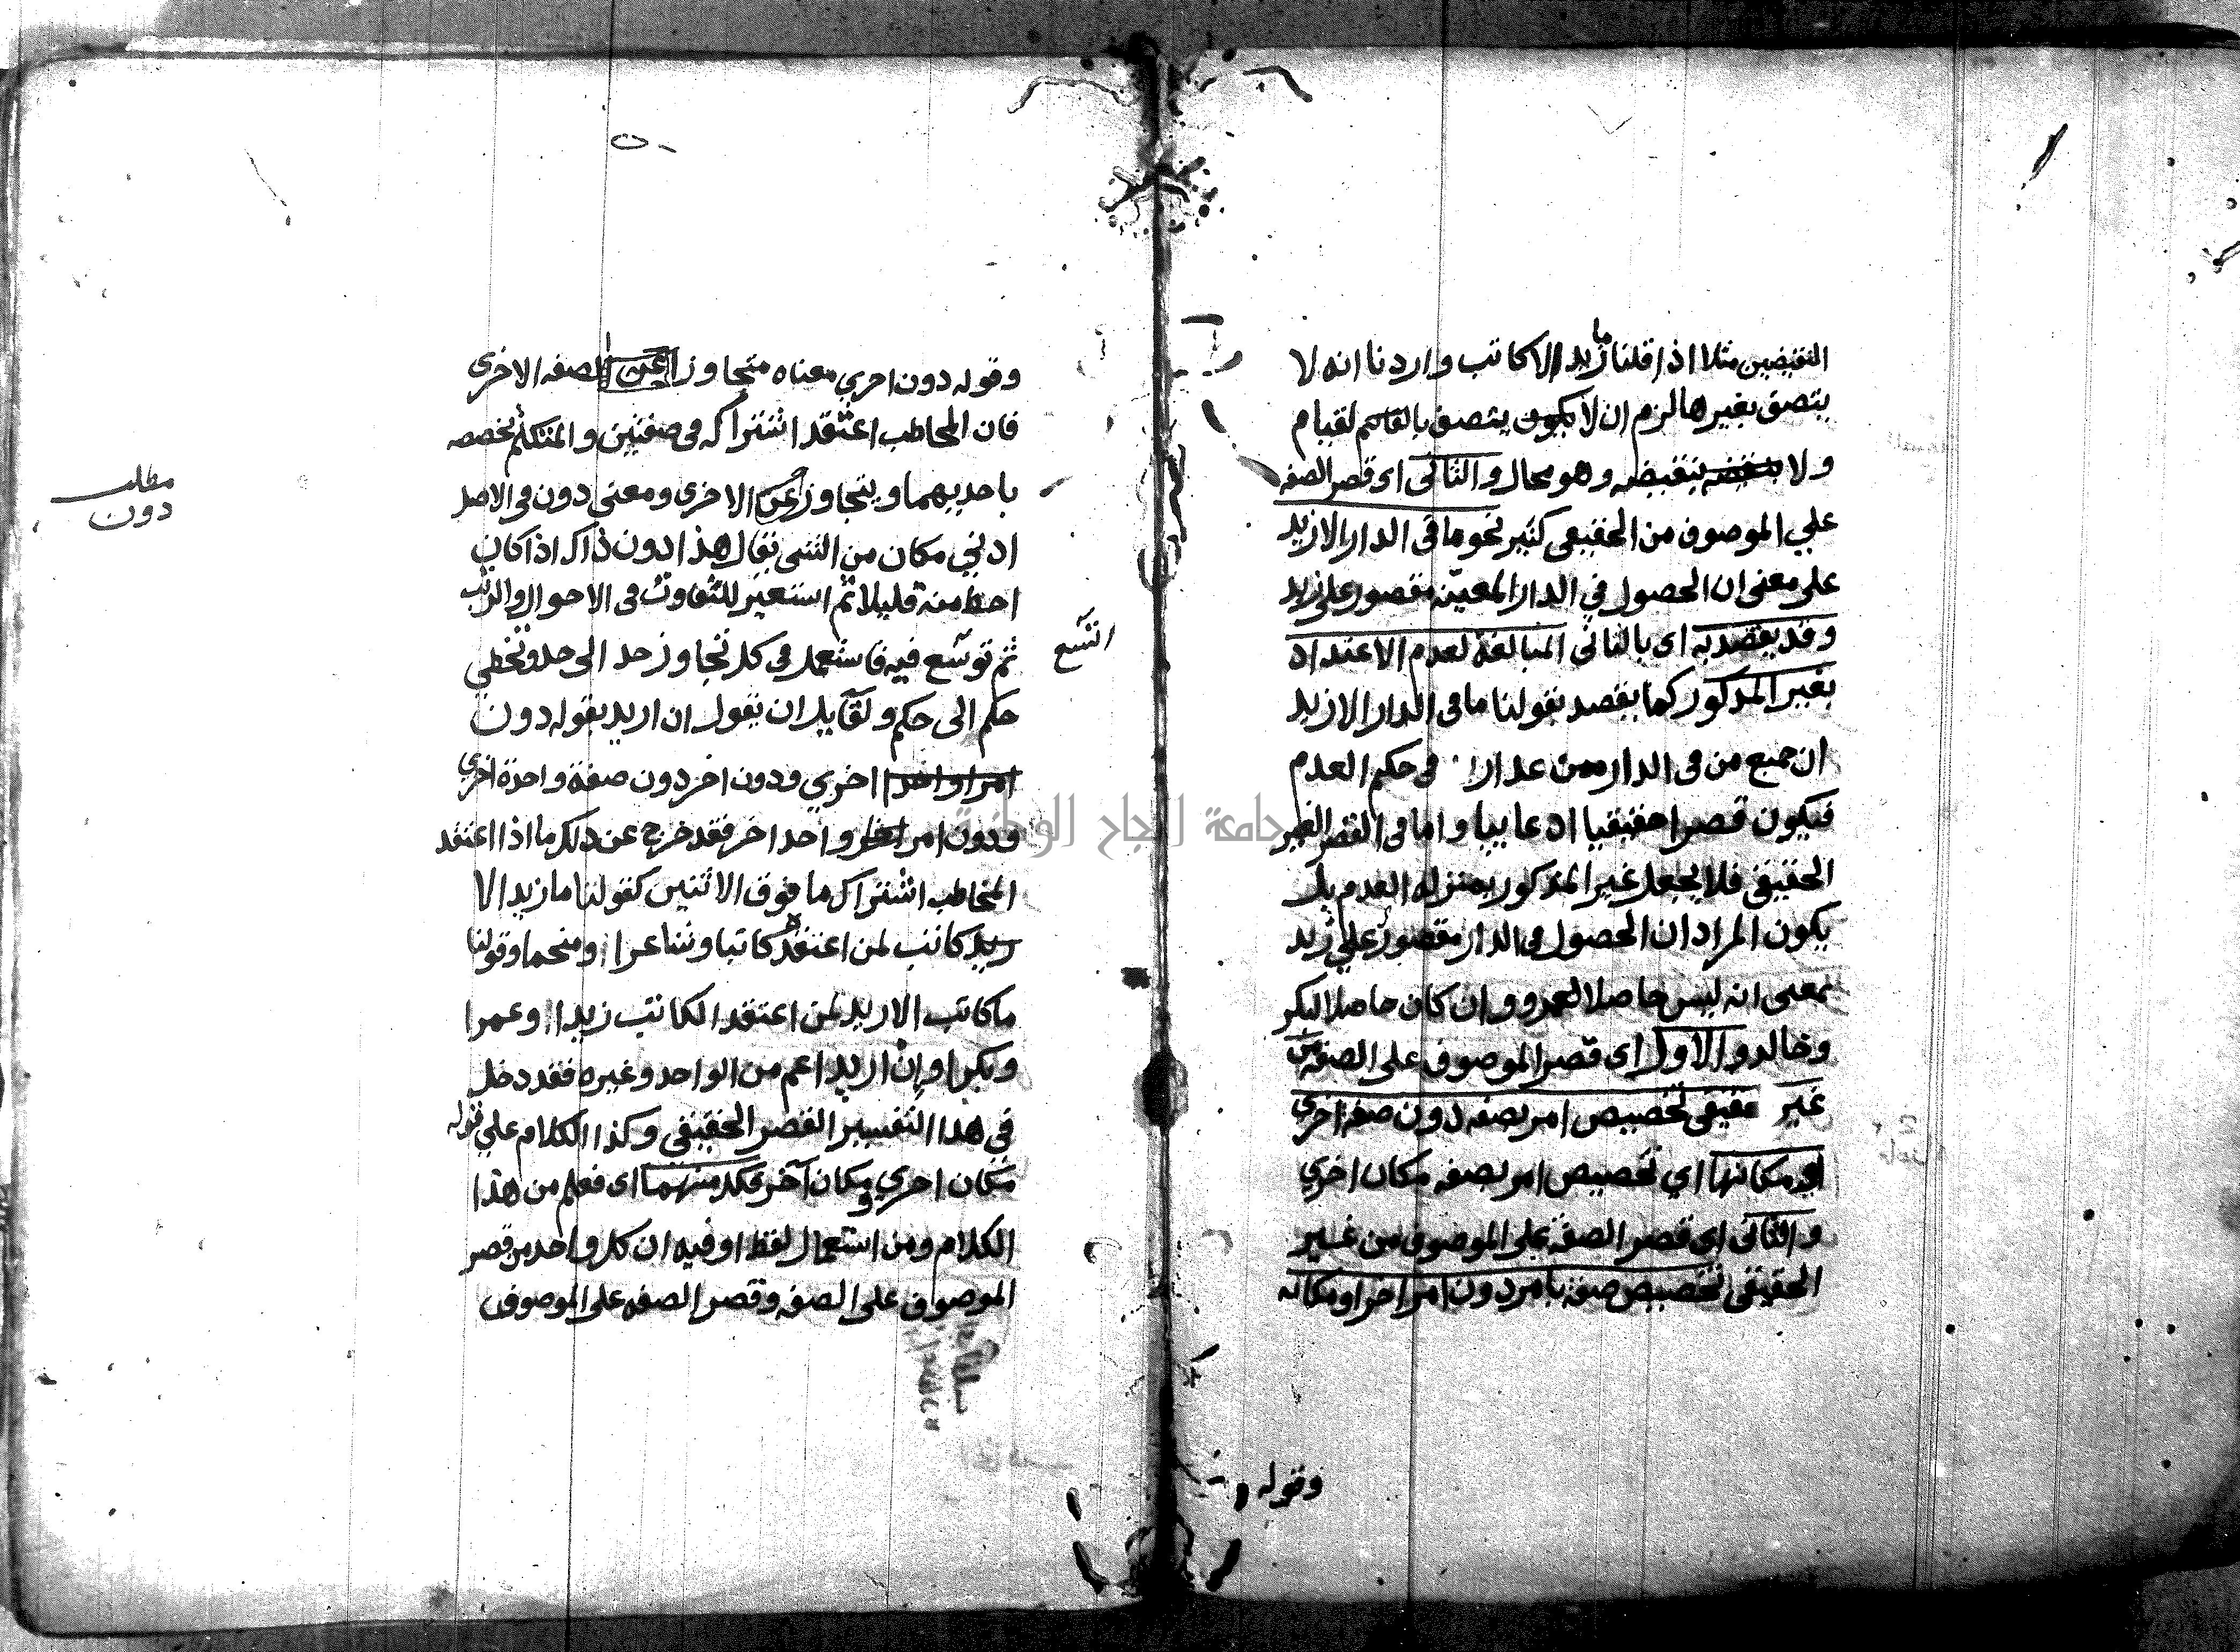 النقيضين مثلا اذا قلنا ما زيد الا كاتب واردنا انه لا
يتصف بغيرها لزم ان لا يكون يتصف بالقاسم لقيام
ولا بنقيضه وهو محال والثانى اى قصر الصفه
علي الموصوف من الحقيقى كثير نحو ما فى الدار الا زيد
على معنى ان الحصول في الدار المعينه مقصور على زيد
وقد يقصد به اى بالثانى المبالغة لعدم الاعتداد
بغير المذكور كما يقصد بقولنا ما فى الدار الا زيد
ان جميع من فى الدار ممن عدا زيدا فى حكم العدم
فيكون قصرا حقيقيا ادعاييا واما فى القصر الغير
الحقيقى فلا يجعل غير المذكور بمنزله العدم بل
يكون المراد ان الحصول فى الدار مقصور علي زيد
بمعنى انه ليس حاصلا لعمرو وان كان حاصلا لبكر
وخالد والاول اى قصر الموصوف على الصفه من
غير حقيقى تخصيص امر بصفه دون صفة اخري
او مكانها اي تخصيص امر بصفه مكان اخري
والثانى اى قصر الصفة على الموصوف من غير
الحقيقى تخصيص صفة بامر دون امر اخر او مكانه
وقوله
وقوله دون اخري معناه متجاوزا عن الصفه الاخرى
فان المخاطب اعتقد اشتراكه فى صفتين والمتكلم يخصصه
باحديهما ويتجاوز عن الاخرى ومعنى دون فى الاصل
ادني مكان من الشى يقال هذا دون ذاك اذا كان
احط منه قليلا ثم استعير للتفاوت فى الاحوال والرتب
ثم توسع فيه فاستعمل فى كل تجاوز حد الى حد وتخطى
اتسع
حكم الى حكم ولقايل ان يقول ان اريد بقوله دون
اخري ودون اخر دون صفة واحدة اخري
ودون امر واحد اخر فقد خرج عن ذلك ما اذا اعتقد
المخاطب اشتراك ما فوق الاثنين كقولنا ما زيد الا
كاتب لمن اعتقده كاتبا وشاعرا ومنجما وقولنا
ما كاتب الا زيد لمن اعتقد الكاتب زيدا وعمرا
وبكرا وان اريد اعم من الواحد وغيره فقد دخل
في هذا التفسير القصر الحقيقى وكذا الكلام علي قوله
مكان اخري ومكان آخر فكل منهما اى فعلم من هذا
الكلام ومن استعمال لفظ او فيه ان كل واحد من قصر
الموصوف على الصفه وقصر الصفه على الموصوف
مطلب
دون
جامعة النجاح الوطنية